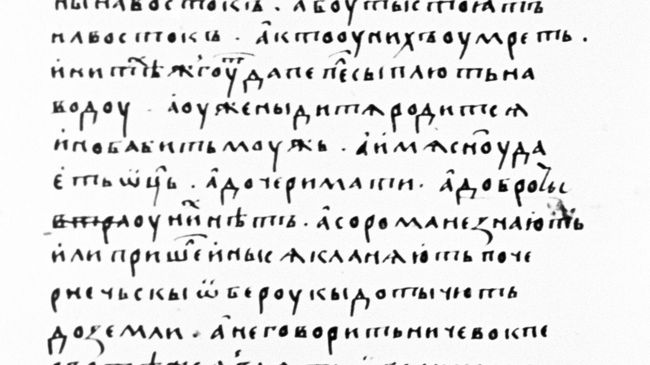 ны на востокъ. а боуты стоꙗтъ
на востокъ. а кто оу нихъ оумреть.
и ни тѣⷯ жгоуⷮ да пепеⷧ сыплють на
водоу. а оу жены дитѧ родитсѧ
ино бабить моужь. а имѧ сн҃оу да
еть ѿць. а дочери мати. а доброⷡы
оу ниⷯ нѣтъ. а сорома не знають
или пришеⷧ и ны сѧ кланѧють по че
рнечьскы ѿбе роукы дотычють
до земли. а не говорить ничево к пе